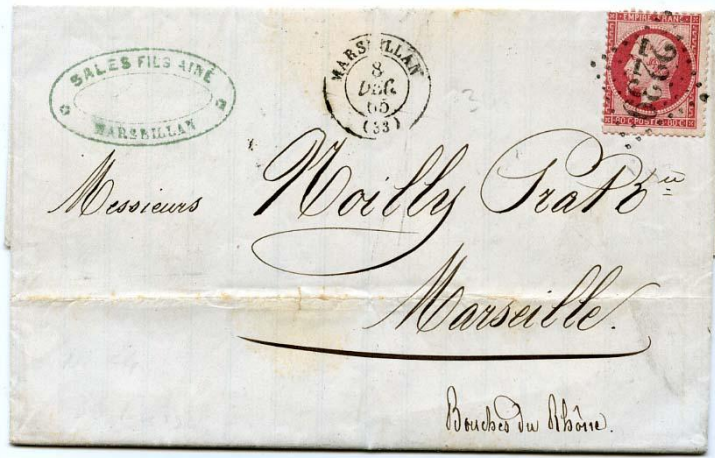 SALES FILS AINÉ
MARSEILLAN
MARSEILLAN
8
DEC.
65
(33)
EMPIRE FRANC
80 C POSTE 80 C
Messieurs Noilly Prat &
Marseille.
Bouches du Rhône.